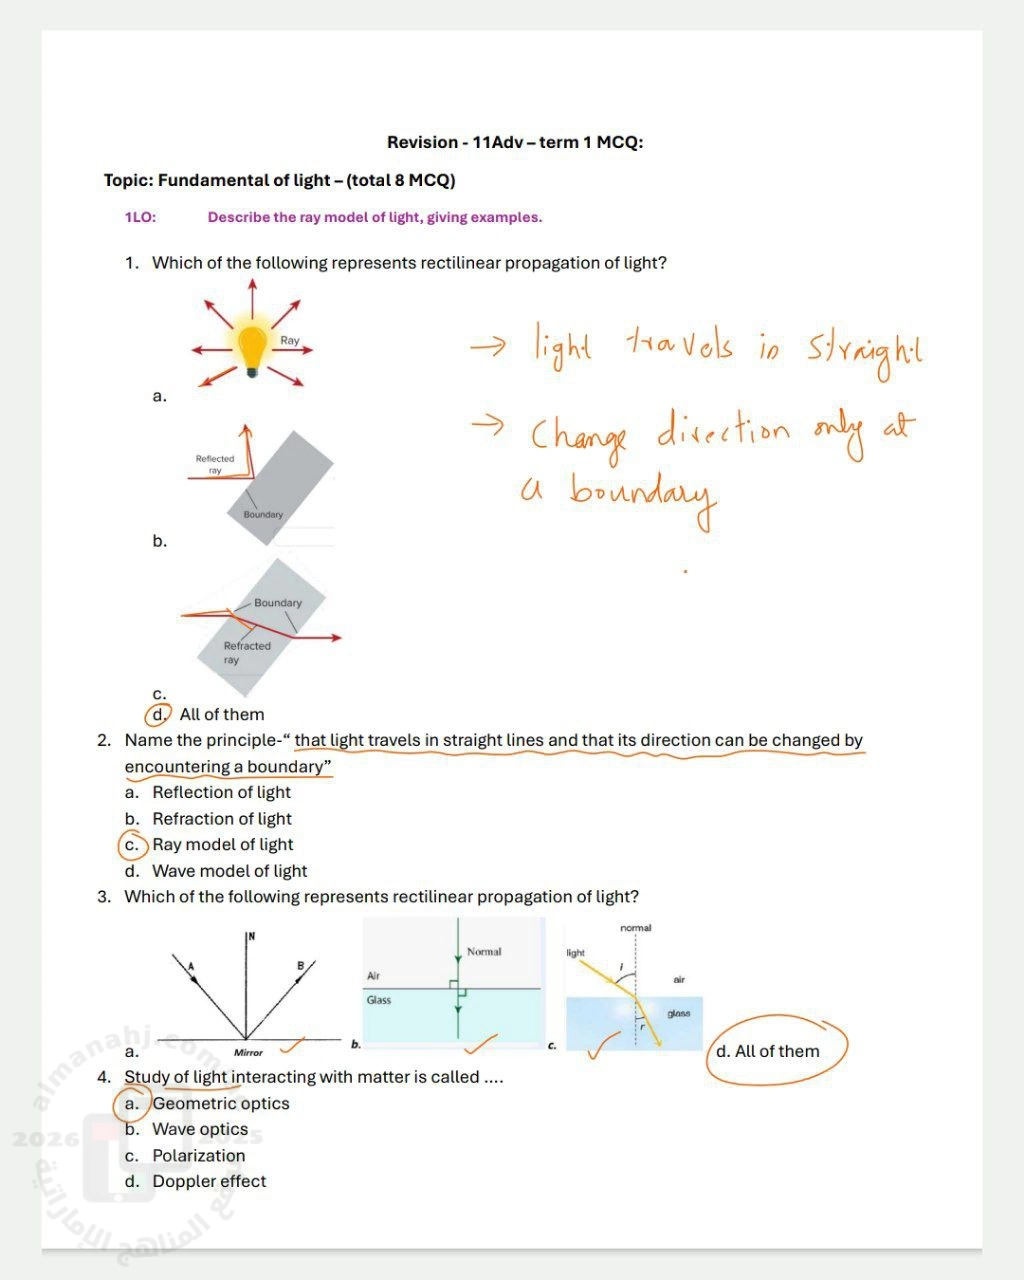 Revision - 11Adv – term 1 MCQ:
Topic: Fundamental of light – (total 8 MCQ)
1LO: Describe the ray model of light, giving examples.
1. Which of the following represents rectilinear propagation of light?
Ray
a.
→ light travels in straight
→ Change direction only at
a boundary
Reflected
ray
Boundary
b.
Boundary
Refracted
ray
c.
d. All of them
2. Name the principle-“ that light travels in straight lines and that its direction can be changed by
encountering a boundary”
a. Reflection of light
b. Refraction of light
c. Ray model of light
d. Wave model of light
3. Which of the following represents rectilinear propagation of light?
N
A
B
Mirror
a.
Normal
Air
Glass
b.
normal
light
i
air
glass
r
c.
d. All of them
4. Study of light interacting with matter is called ....
a. Geometric optics
b. Wave optics
c. Polarization
d. Doppler effect
almanahj.com
2026
2025
المناهج الإماراتية